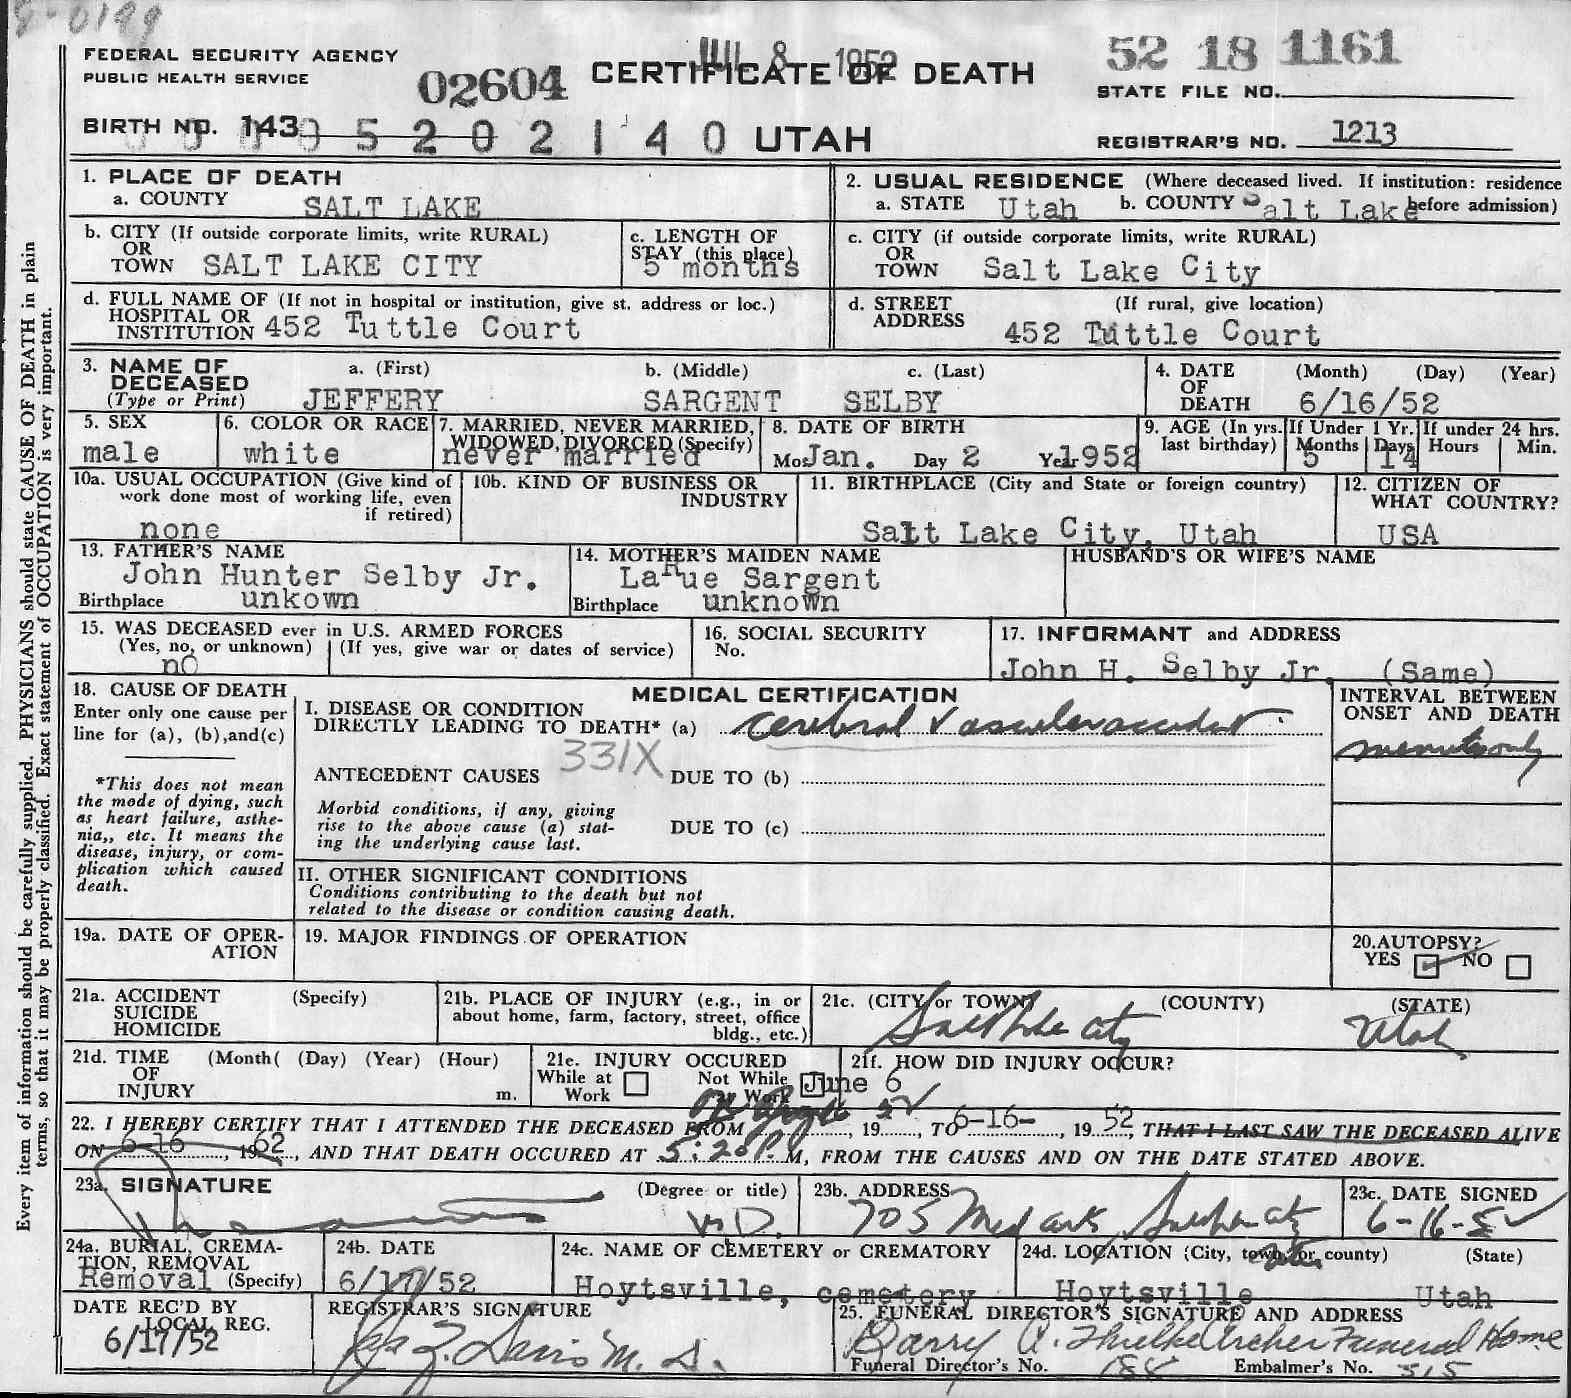 8-0199
FEDERAL SECURITY AGENCY
PUBLIC HEALTH SERVICE
02604
JUL 8 1952
CERTIFICATE OF DEATH
52 18 1161
STATE FILE NO.
BIRTH NO. 143 05202140 UTAH
REGISTRAR'S NO. 1213
1. PLACE OF DEATH
a. COUNTY SALT LAKE
2. USUAL RESIDENCE (Where deceased lived. If institution: residence before admission)
a. STATE Utah b. COUNTY Salt Lake
b. CITY (If outside corporate limits, write RURAL)
OR
TOWN SALT LAKE CITY
c. LENGTH OF
STAY (this place)
5 months
c. CITY (if outside corporate limits, write RURAL)
OR
TOWN Salt Lake City
d. FULL NAME OF (If not in hospital or institution, give st. address or loc.)
HOSPITAL OR
INSTITUTION 452 Tuttle Court
d. STREET (If rural, give location)
ADDRESS 452 Tuttle Court
3. NAME OF
DECEASED
(Type or Print)
a. (First) b. (Middle) c. (Last)
JEFFERY SARGENT SELBY
4. DATE (Month) (Day) (Year)
OF
DEATH 6/16/52
5. SEX
male
6. COLOR OR RACE
white
7. MARRIED, NEVER MARRIED,
WIDOWED, DIVORCED (Specify)
never married
8. DATE OF BIRTH
Mo. Jan. Day 2 Year 1952
9. AGE (In yrs. last birthday)
If Under 1 Yr.
Months Days
5 14
If under 24 hrs.
Hours Min.
10a. USUAL OCCUPATION (Give kind of
work done most of working life, even
if retired)
none
10b. KIND OF BUSINESS OR
INDUSTRY
11. BIRTHPLACE (City and State or foreign country)
Salt Lake City, Utah
12. CITIZEN OF
WHAT COUNTRY?
USA
13. FATHER'S NAME
John Hunter Selby Jr.
Birthplace unkown
14. MOTHER'S MAIDEN NAME
LaRue Sargent
Birthplace unknown
HUSBAND'S OR WIFE'S NAME
15. WAS DECEASED ever in U.S. ARMED FORCES
(Yes, no, or unknown) (If yes, give war or dates of service)
no
16. SOCIAL SECURITY
No.
17. INFORMANT and ADDRESS
John H. Selby Jr. (Same)
18. CAUSE OF DEATH
Enter only one cause per
line for (a), (b),and(c)
*This does not mean
the mode of dying, such
as heart failure, asthe-
nia,, etc. It means the
disease, injury, or com-
plication which caused
death.
MEDICAL CERTIFICATION
I. DISEASE OR CONDITION
DIRECTLY LEADING TO DEATH* (a) Cerebral Vascular accident
331X
ANTECEDENT CAUSES DUE TO (b)
Morbid conditions, if any, giving
rise to the above cause (a) stat-
ing the underlying cause last.
DUE TO (c)
II. OTHER SIGNIFICANT CONDITIONS
Conditions contributing to the death but not
related to the disease or condition causing death.
INTERVAL BETWEEN
ONSET AND DEATH
minutes only
19a. DATE OF OPER-
ATION
19. MAJOR FINDINGS OF OPERATION
20. AUTOPSY?
YES NO
21a. ACCIDENT (Specify)
SUICIDE
HOMICIDE
21b. PLACE OF INJURY (e.g., in or
about home, farm, factory, street, office
bldg., etc.)
21c. (CITY or TOWN) (COUNTY) (STATE)
Salt Lake City Utah
21d. TIME (Month( (Day) (Year) (Hour)
OF
INJURY m.
21e. INJURY OCCURED
While at Work Not While at Work
21f. HOW DID INJURY OCCUR?
June 6
22. I HEREBY CERTIFY THAT I ATTENDED THE DECEASED FROM , 19 , TO 6-16- , 19 52, THAT I LAST SAW THE DECEASED ALIVE
ON 6-16 , 1962, AND THAT DEATH OCCURED AT 5:20 P.M, FROM THE CAUSES AND ON THE DATE STATED ABOVE.
23a. SIGNATURE (Degree or title)
M.D.
23b. ADDRESS
705 Med arts Salt Lake City
23c. DATE SIGNED
6-16-52
24a. BURIAL, CREMA-
TION, REMOVAL
Removal (Specify)
24b. DATE
6/17/52
24c. NAME OF CEMETERY or CREMATORY
Hoytsville, cemetery
24d. LOCATION (City, town, or county) (State)
Hoytsville Utah
DATE REC'D BY
LOCAL REG.
6/17/52
REGISTRAR'S SIGNATURE
Davis M. D.
25. FUNERAL DIRECTOR'S SIGNATURE AND ADDRESS
Barry A. Archer Funeral Home
Funeral Director's No. Embalmer's No. 315
Every item of information should be carefully supplied. PHYSICIANS should state CAUSE OF DEATH in plain
terms, so that it may be properly classified. Exact statement of OCCUPATION is very important.